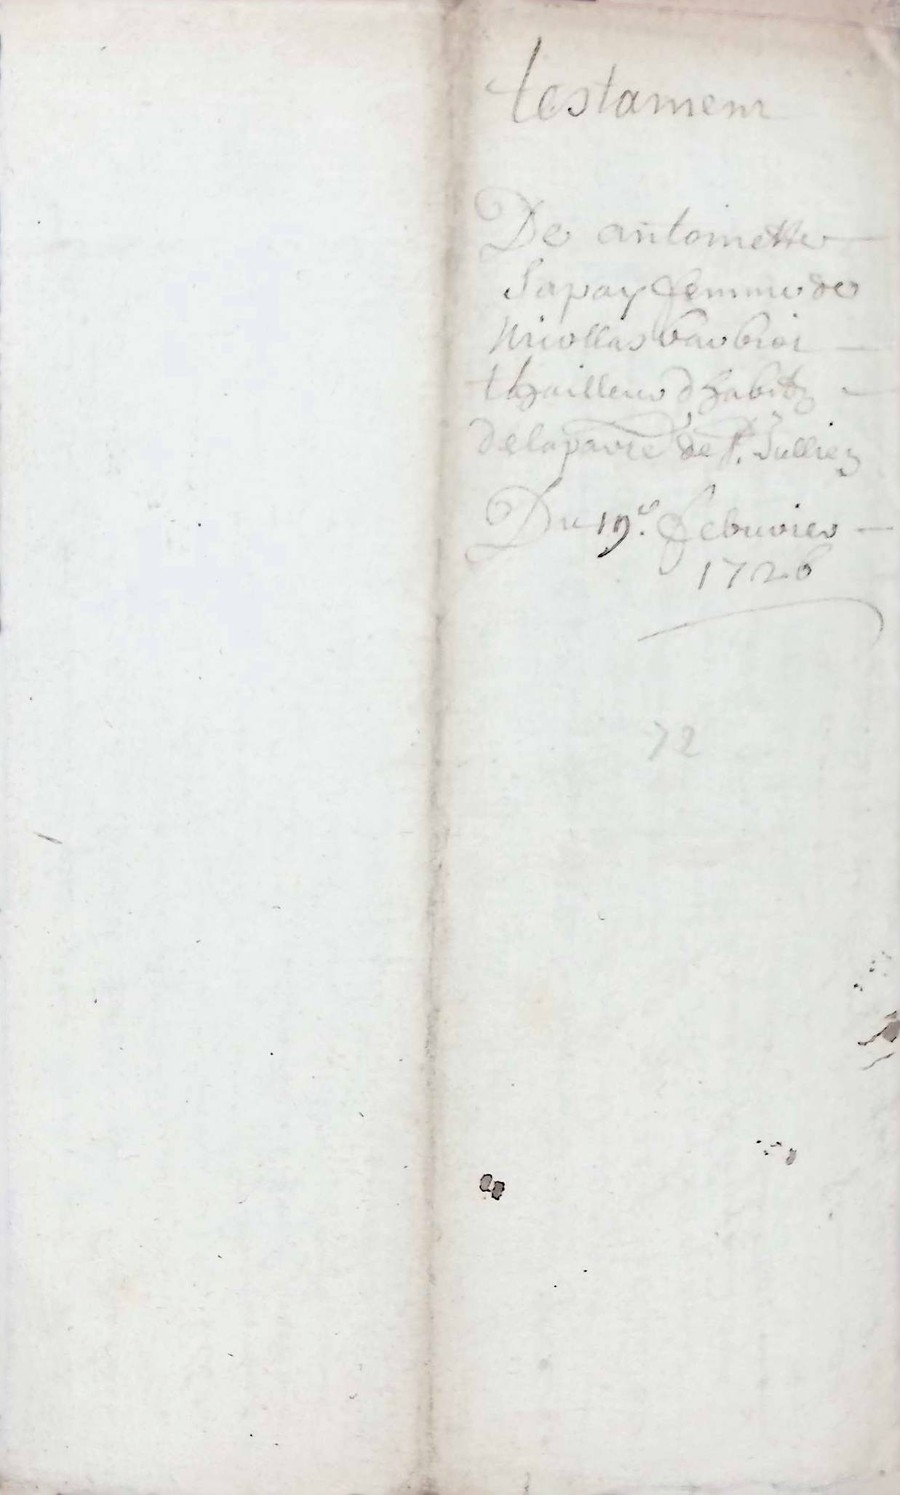 testament
De antoinette
Sapay femme de
Nicollas
thailleur d'habitz
de la parre de St. Jullien
Du 19e. febuvier
1726
72